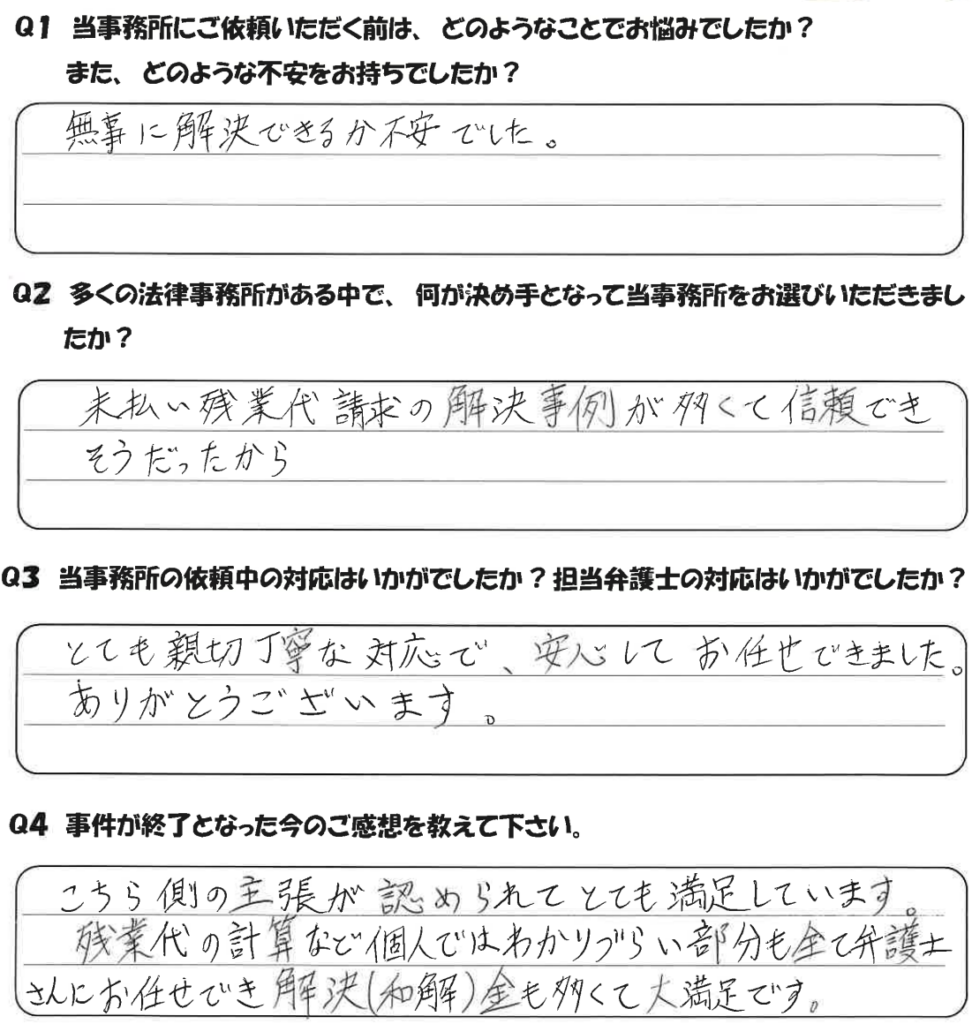 Q1 当事務所にご依頼いただく前は、どのようなことでお悩みでしたか？
また、どのような不安をお持ちでしたか？
無事に解決できるか不安でした。
Q2 多くの法律事務所がある中で、何が決め手となって当事務所をお選びいただきまし
たか？
未払い残業代請求の解決事例が多くて信頼でき
そうだったから
Q3 当事務所の依頼中の対応はいかがでしたか？担当弁護士の対応はいかがでしたか？
とても親切丁寧な対応で、安心してお任せできました。
ありがとうございます。
Q4 事件が終了となった今のご感想を教えて下さい。
こちら側の主張が認められてとても満足しています。
残業代の計算など個人ではわかりづらい部分も全て弁護士
さんにお任せでき解決(和解)金も多くて大満足です。